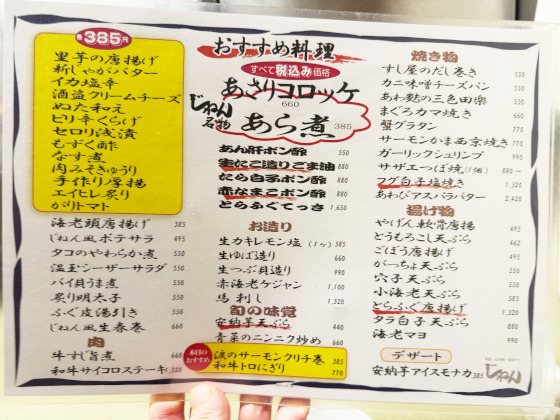 各385円
里芋の唐揚げ
新じゃがバター
イカ塩辛
酒盗クリームチーズ
ぬた和え
ピリ辛くらげ
セロリ浅漬
もずく酢
なす煮
肉みそきゅうり
手作り厚揚
エイヒレ炙り
がりトマト
海老頭唐揚げ 385
じねん風ポテサラ 495
タコのやわらか煮 550
温玉シーザーサラダ 550
バイ貝うま煮 550
炙り明太子 550
ふぐ皮湯引き 550
じねん風生春巻 660
肉
牛すじ旨煮 660
和牛サイコロステーキ 1,320
おすすめ料理
すべて税込み価格
あさりコロッケ
660
じねん名物
あら煮 385
あん肝ポン酢 550
生だこ造りごま油 880
たら白子ポン酢 880
赤なまこポン酢 880
とらふぐてっさ 1,650
お造り
生カキレモン塩(1ヶ) 385
生ゆば造り 660
生つぶ貝造り 990
赤海老ケジャン 1,100
馬刺し 1,320
旬の味覚
安納芋天ぷら 440
青菜のニンニク炒め 660
本日のおすすめ
涙のサーモンクリチ巻 385
和牛トロにぎり 770
焼き物
すし屋のだし巻き 550
カニ味噌チーズパン 550
あわ麩の三色田楽 550
まぐろカマ焼き 660
蟹グラタン 770
サーモンかま西京焼き 770
ガーリックシュリンプ 990
サザエつぼ焼(1個) 880~
フグ白子塩焼き 1,320
あわびアスパラバター 2,420
揚げ物
やげん軟骨唐揚 495
とうもろこし天ぷら 462
ごぼう唐揚げ 495
がっちょ天ぷら 495
穴子天ぷら 550
小海老天ぷら 583
とらふぐ唐揚げ 1,320
タラ白子天ぷら 880
海老マヨ 990
デザート
安納芋アイスモナカ 385
じねん